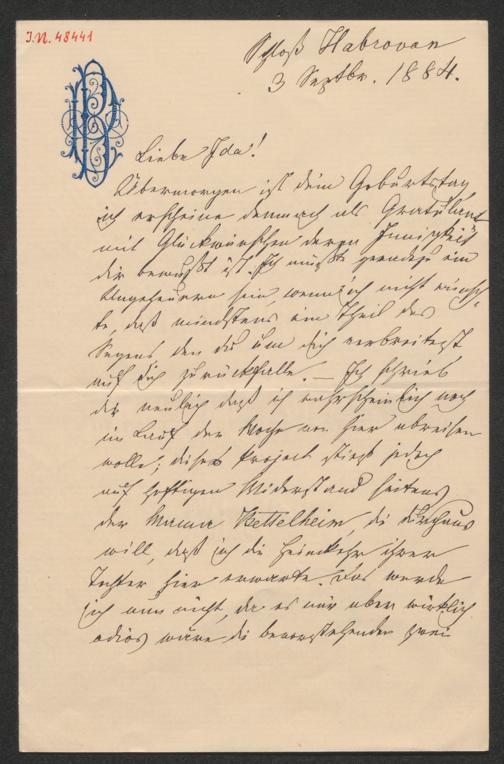 I.N. 48441
Schloß Habrovan
3 Septbr. 1884.
Liebe Ida!
Übermorgen ist dein Geburtstag,
ich erscheine demnach als Gratulant
mit Glückwünschen deren Innigkeit
dir bewußt ist. Ich müßte geradezu ein
Ungeheuer sein, wenn ich nicht wünsch-
te, daß mindestens ein Theil des
Segens den du um dich verbreitest
auf dich zurückfalle. — Ich schrieb
dir neulich daß ich wahrscheinlich noch
im Lauf der Woche von hier abreisen
wolle; dieses Project stieß jedoch
auf heftigen Widerstand seitens
der Mama Bettelheim, die durchaus
will, daß ich die Heimkehr ihrer
Tochter hier erwarte. Das werde
ich nun nicht, da es mir aber wirklich
odios wäre die bevorstehenden zwei